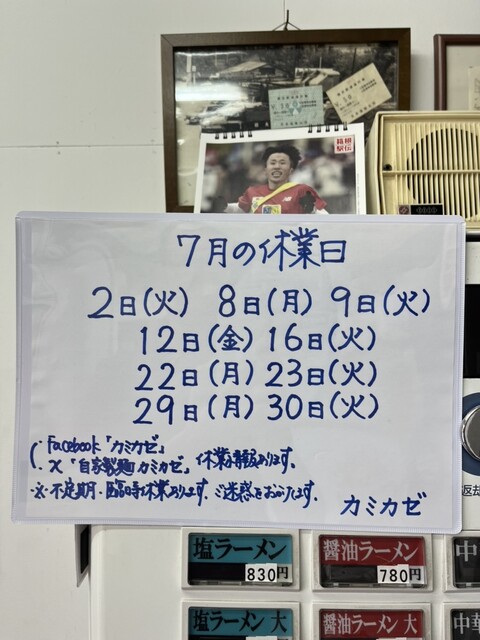 箱根
駅伝
7月の休業日
2日(火) 8日(月) 9日(火)
12日(金) 16日(火)
22日(月) 23日(火)
29日(月) 30日(火)
・Facebook「カミカゼ」
・X「自家製麺カミカゼ」休業情報あります。
※不定期・臨時休業あります。ご迷惑をおかけします。
カミカゼ
返却
塩ラーメン
830円
醤油ラーメン
780円
中
塩ラーメン 大
醤油ラーメン 大
中華